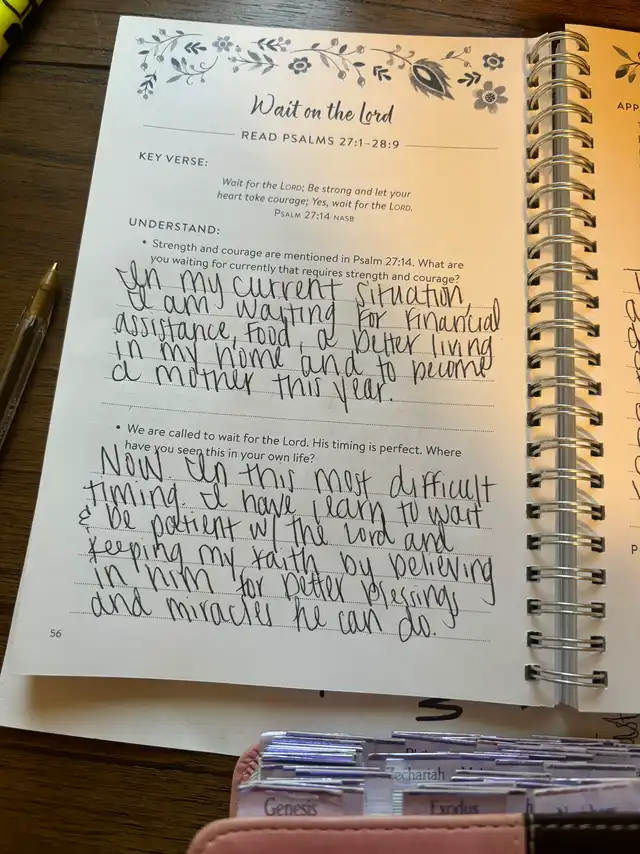 Wait on the Lord
READ PSALMS 27:1–28:9
KEY VERSE:
Wait for the LORD; Be strong and let your
heart take courage; Yes, wait for the LORD.
PSALM 27:14 NASB
UNDERSTAND:
• Strength and courage are mentioned in Psalm 27:14. What are
you waiting for currently that requires strength and courage?
In my current situation,
I am waiting for financial
assistance, food, a better living
in my home and to become
a mother this year.
• We are called to wait for the Lord. His timing is perfect. Where
have you seen this in your own life?
Now. In this most difficult
timing. I have learn to wait
& be patient w/ the Lord and
keeping my faith by believing
in him for better blessings
and miracles he can do.
56
APP
P
Zechariah
Genesis
Exodus